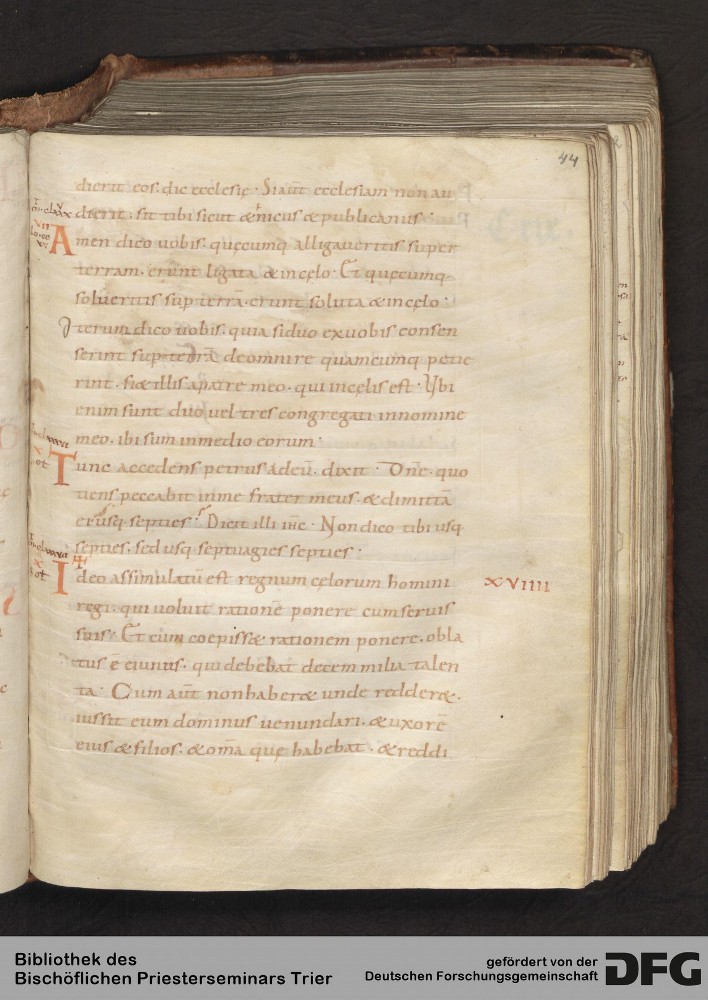 44
dierit eos. dic ecclesię. Si aut̄ ecclesiam non au
dierit. sit tibi sicut & hnicus & publicanus.
Amen dico uobis. quęcumq; alligaueritis super
terram. erunt ligata & in cęlo. Et quęcumq;
solueritis sup terrā. erunt soluta & in cęlo.
Iterum dico uobis. quia si duo ex uobis consen
serint sup terrā de omni re quamcumq; petie
rint. fi& illis a patre meo. qui in cęlis est. Ubi
enim sunt duo uel tres congregati in nomine
meo. ibi sum in medio eorum.
Tunc accedens petrus ad eū. dixit. Dn̄e. quo
tiens peccabit in me frater meus. & dimittā
ei usq; septies. Dicit illi ih̄c. Non dico tibi usq;
septies. sed usq; septuagies septies.
Ideo assimilatū est regnum cęlorum homini
XVIIII
regi. qui uoluit rationē ponere cum seruis
suis. Et cum coepiss& rationem ponere. obla
tus ē ei unus. qui debebat decem milia talen
ta. Cum aut̄ non haber& unde redder&.
iussit eum dominus uenundari. & uxorē
eius & filios. & om̄a quę habebat. & reddi
Bibliothek des
Bischöflichen Priesterseminars Trier
gefördert von der
Deutschen Forschungsgemeinschaft
DFG